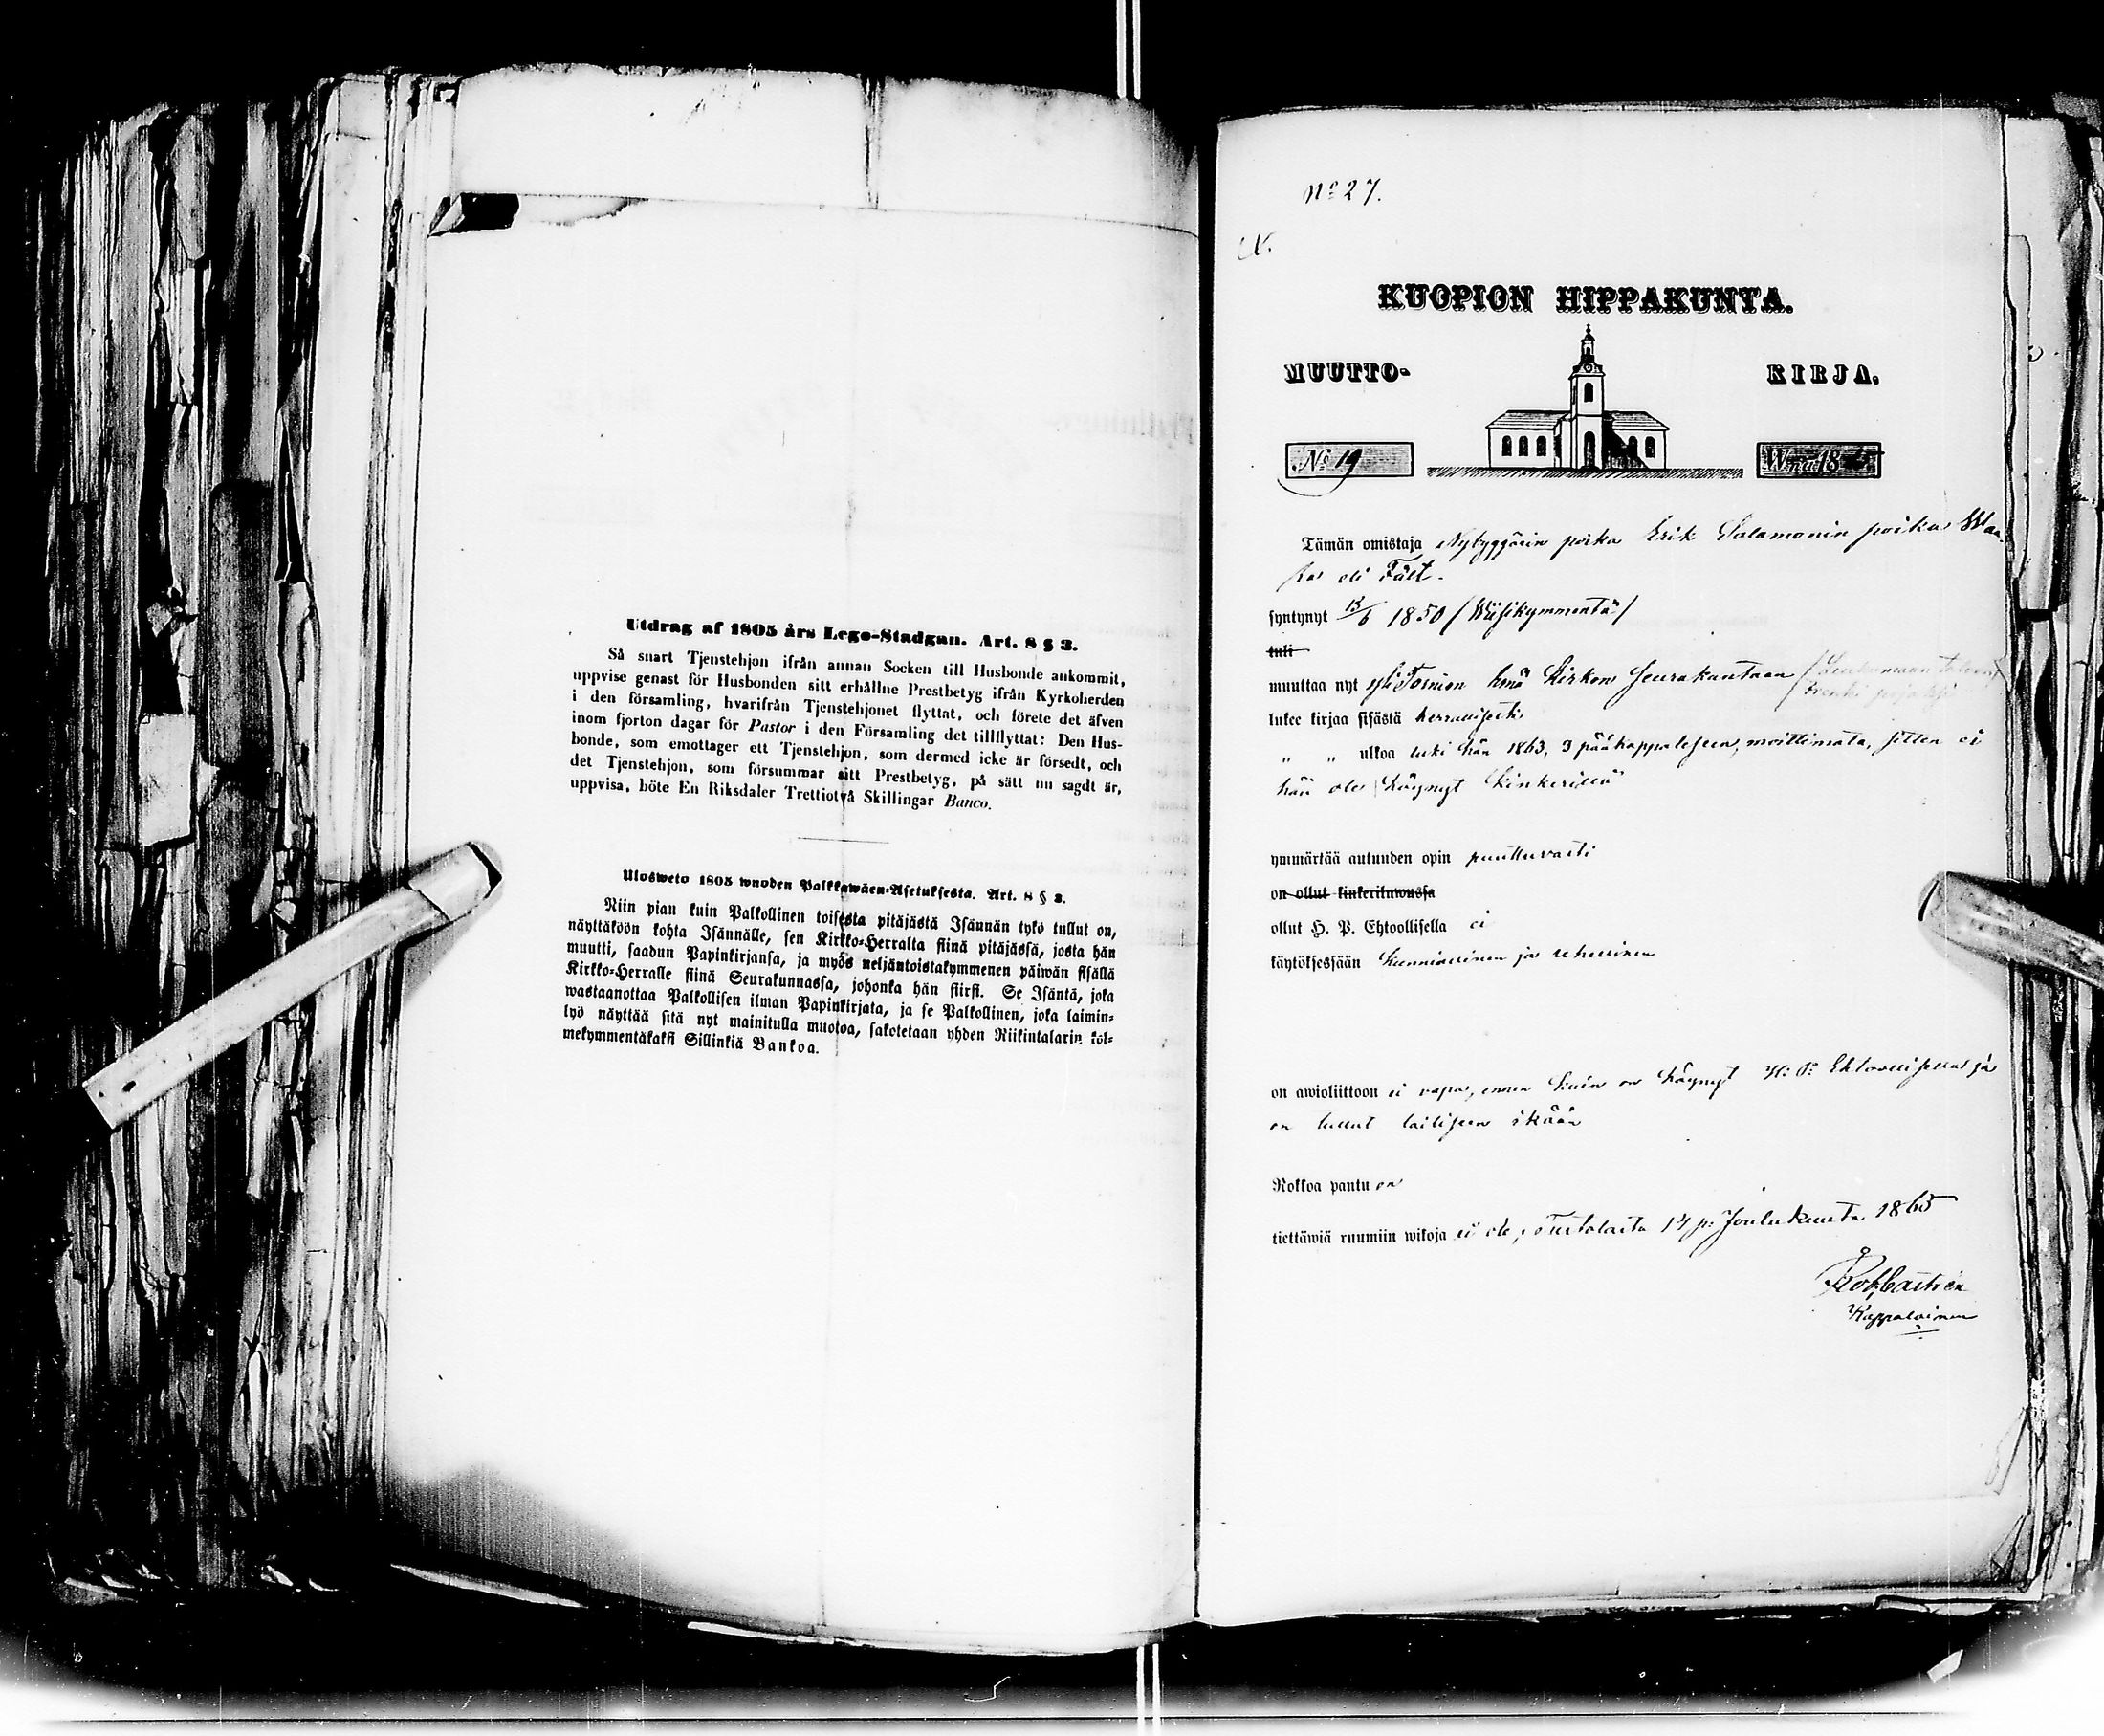 Utdrag af 1805 års Lego-Stadgan. Art. 8 § 3.
Så snart Tjenstehjon ifrån annan Socken till Husbonde ankommit,
uppvise genast för Husbonden sitt erhållne Prestbetyg ifrån Kyrkoherden
i den församling, hvarifrån Tjenstehjonet flyttat, och förete det äfven
inom fjorton dagar för Pastor i den Församling det tillflyttat: Den Hus-
bonde, som emottager ett Tjenstehjon, som dermed icke är försedt, och
det Tjenstehjon, som försummar sitt Prestbetyg, på sätt nu sagdt är,
uppvisa, böte En Riksdaler Trettiotvå Skillingar Banco.
Ulosweto 1805 wuoden Palkkawäen-Asetuksesta. Art. 8 § 3.
Niin pian kuin Palkollinen toisesta pitäjästä Isännän tykö tullut on,
näyttäköön kohta Isännälle, sen Kirkko-Herralta siinä pitäjässä, josta hän
muutti, saadun Papinkirjansa, ja myös neljäntoistakymmenen päiwän sisällä
Kirkko-Herralle siinä Seurakunnassa, johonka hän siirsi. Se Isäntä, joka
wastaanottaa Palkollisen ilman Papinkirjata, ja se Palkollinen, joka laimin-
lyö näyttää sitä nyt mainitulla muotoa, sakotetaan yhden Riikintalarin kol-
mekymmentäkaksi Sillinkiä Bankoa.
No 27.
KUOPION HIPPAKUNTA.
MUUTTO- KIRJA.
No 19 Wnna 18
Tämän omistaja Nybyggärin poika Erik Salamonin poika
eli Fält.
syntynyt 13/6 1850 (Wiisikymmentä)
tuli
muuttaa nyt yli Tornion Emä Kirkon seurakuntaan
lukee kirjaa sisästä kerrallisesti
" " ulkoa luki hän 1863, 3 pääkappaleseen, moittimata, sitten ei
hän ole käynyt Kinkerillä
ymmärtää autuuden opin puuttuvasti
on ollut kinkeriluwussa
ollut H. P. Ehtoollisella ei
käytöksessään kunniallinen ja rehellinen
on awioliittoon ei vapa, ennen kuin on käynyt H. P. Ehtoollisella ja
on tullut lailiseen ikään
Rokkoa pantu on
tiettäwiä ruumiin wikoja ei ole; Turtolasta 14 p. Joulukuuta 1865
Kappalainen